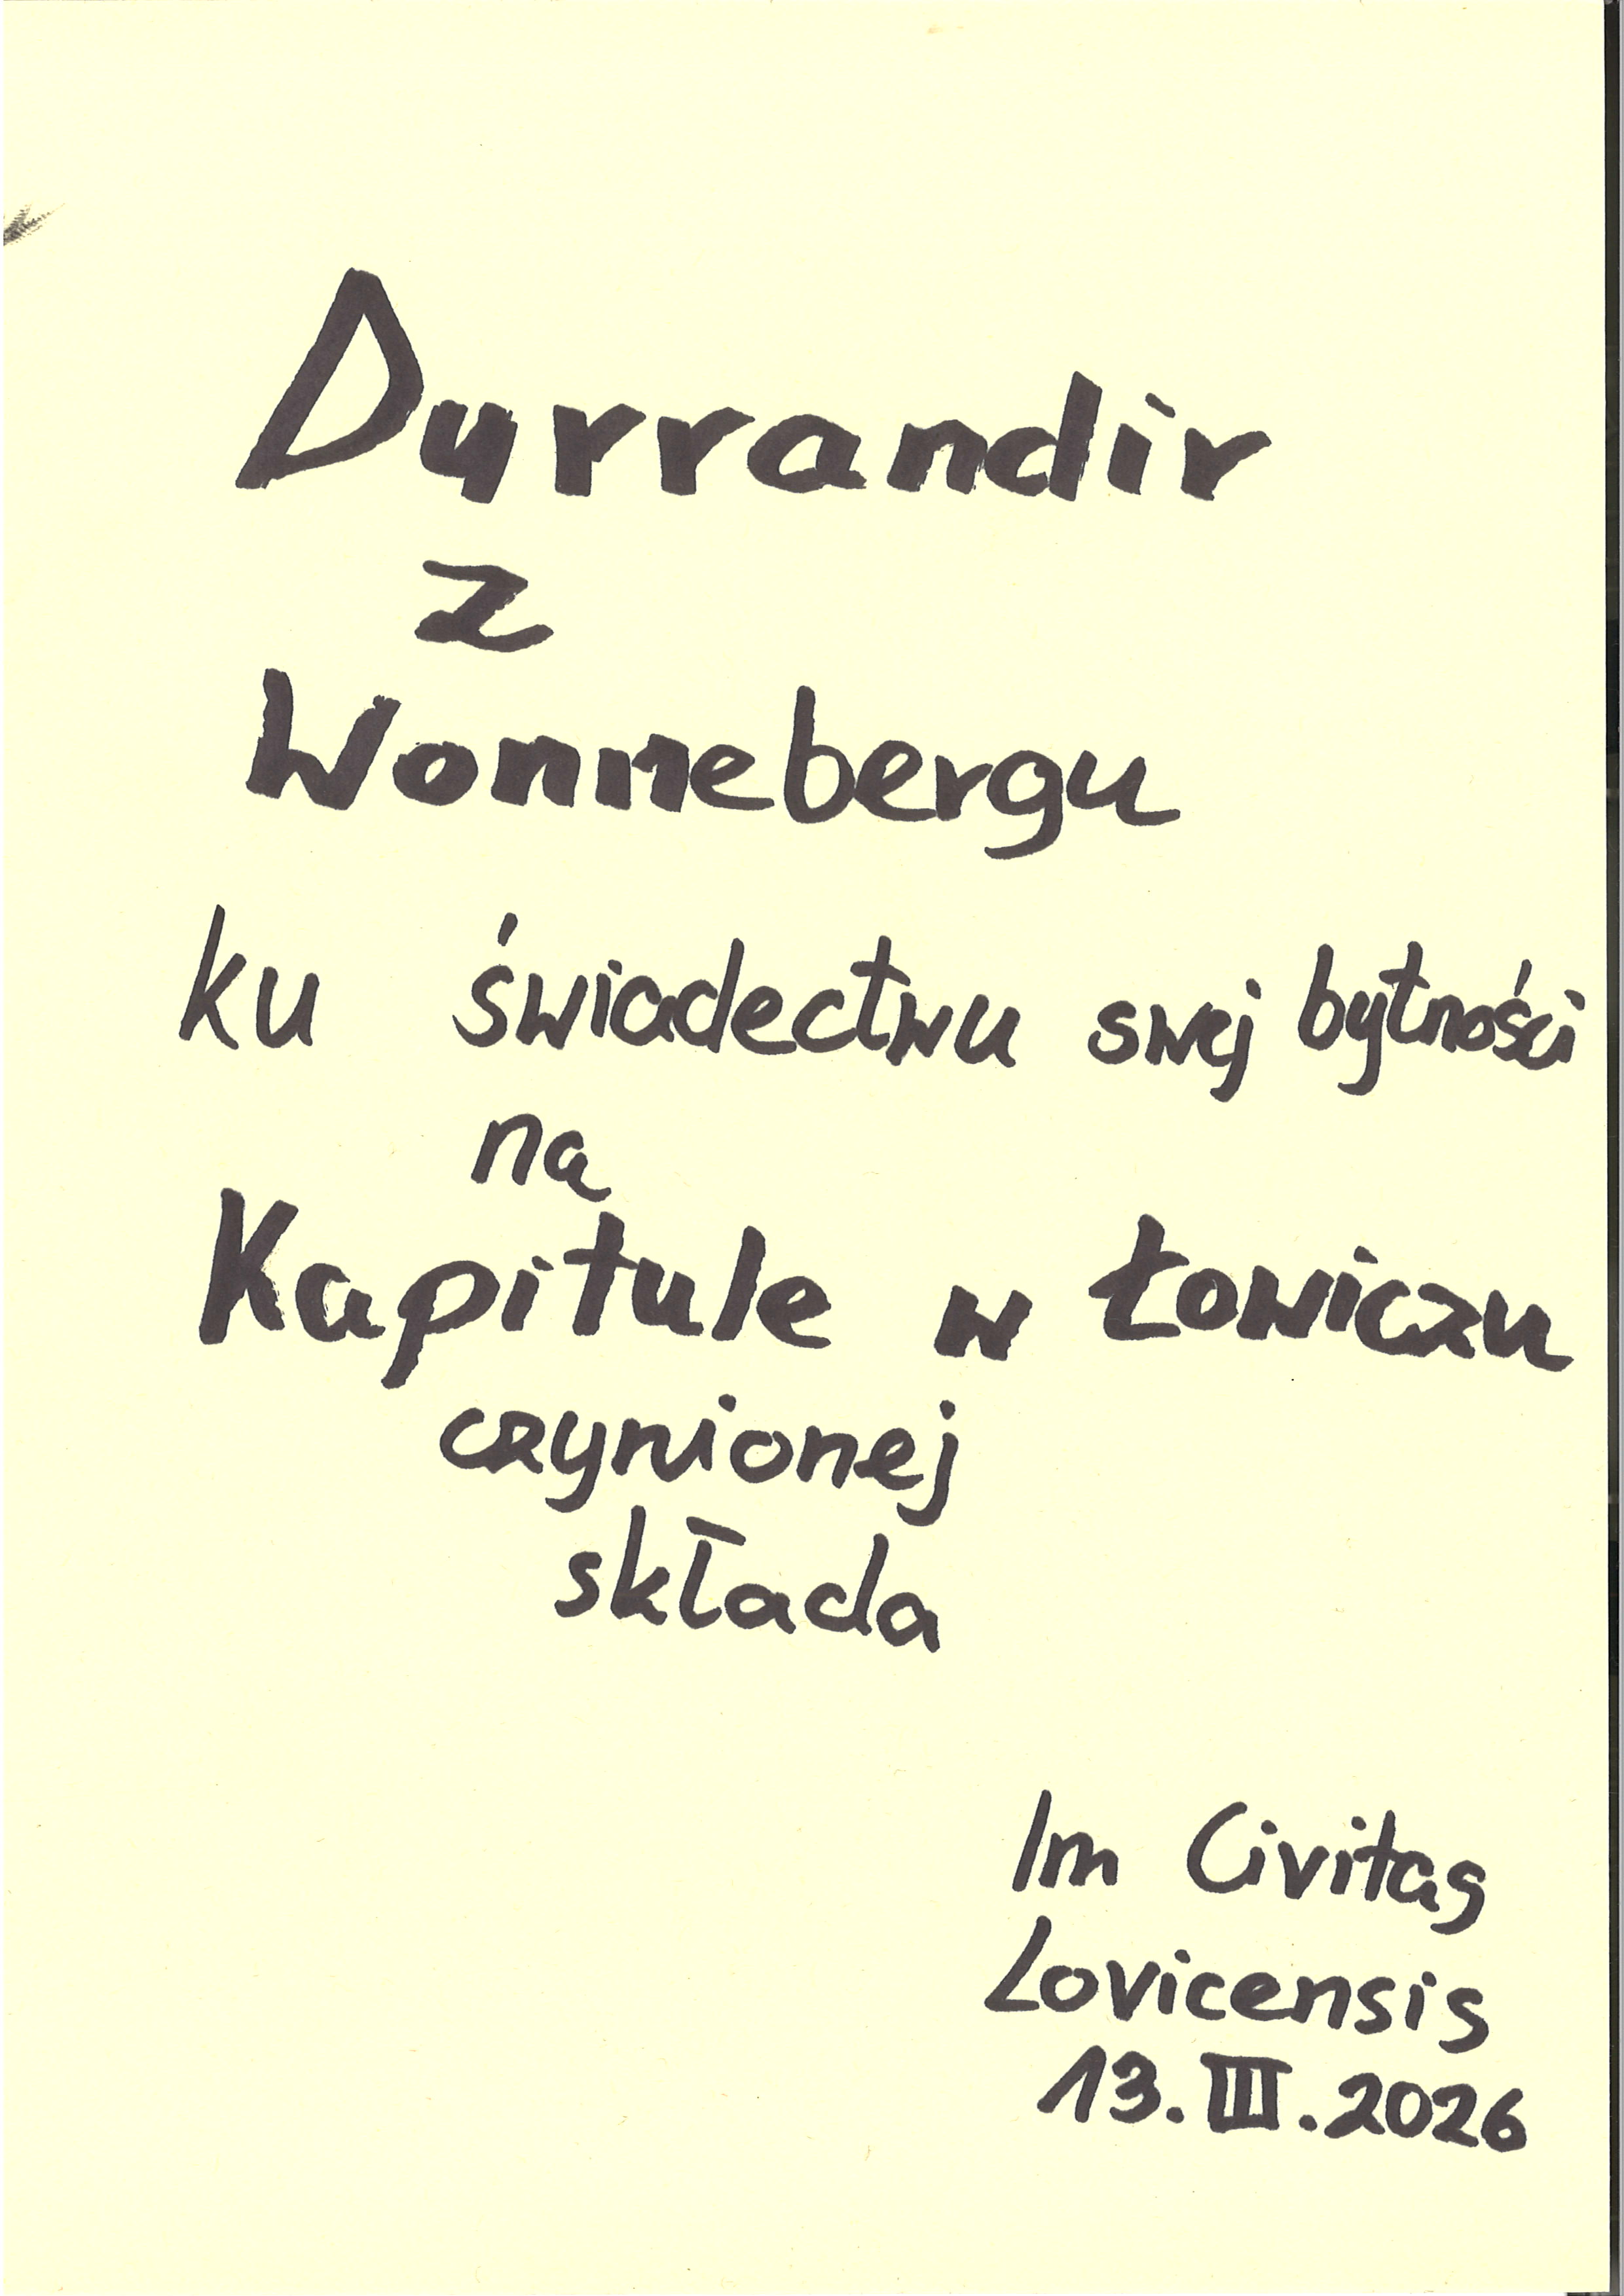 Durrandir
z
Wonnebergu
ku świadectwu swej bytności
na
Kapitule w Łowiczu
czynionej
składa
Im Civitas
Lovicensis
13.III.2026